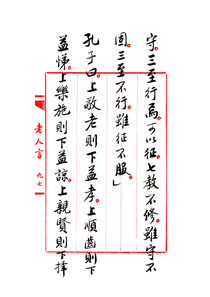 守。三至行焉。可以征。七教不修。雖守不
固。三至不行。雖征不服」
孔子曰。上敬老則下益孝。上順齒則下
益悌。上樂施則下益諒。上親賢則下擇
老人言 九七